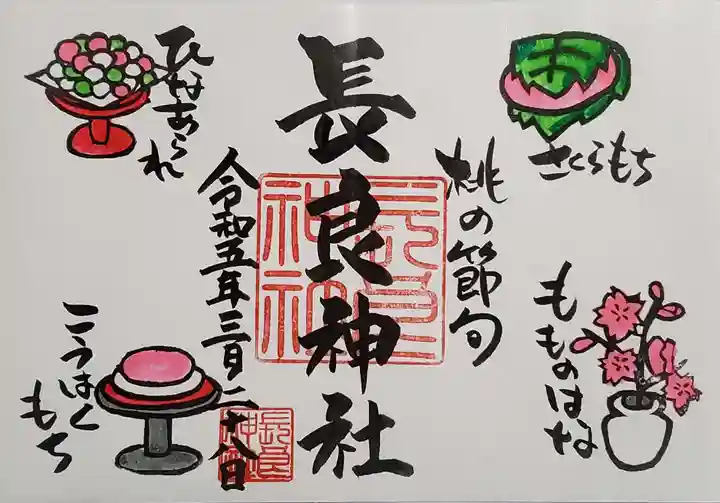 さくらもち
もものはな
桃の節句
長良神社
長良神社
令和五年三月二十八日
長良神社
ひなあられ
こうはくもち